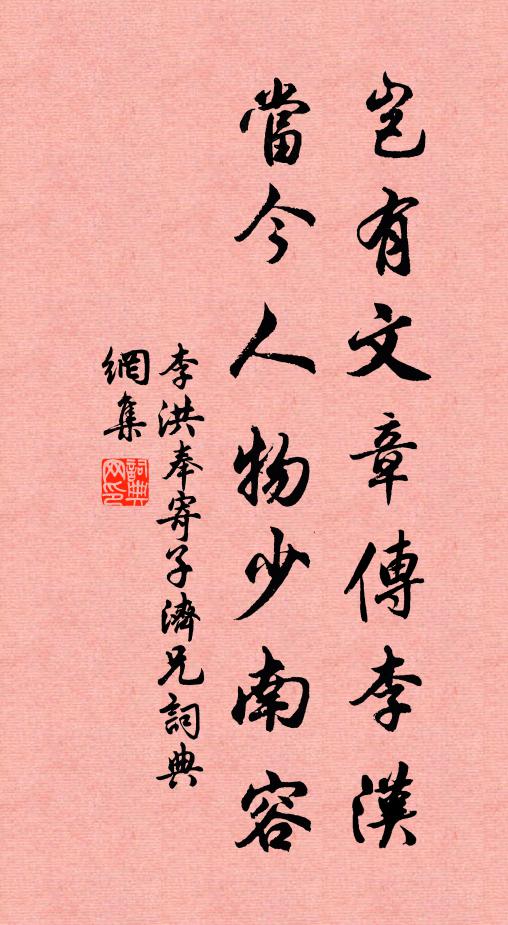 豈有文章傳李漢
當今人物少南容
李洪奉寄子濟兄詞典
網集
詞典網印